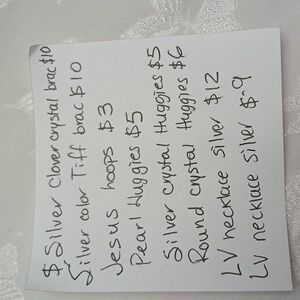 $ Silver Clover crystal brac $10
Silver color Tiff brac $10
Jesus hoops $3
Pearl Huggies $5
Silver crystal Huggies $5
Round crystal Huggies $6
LV necklace silver $12
LV necklace silver $9